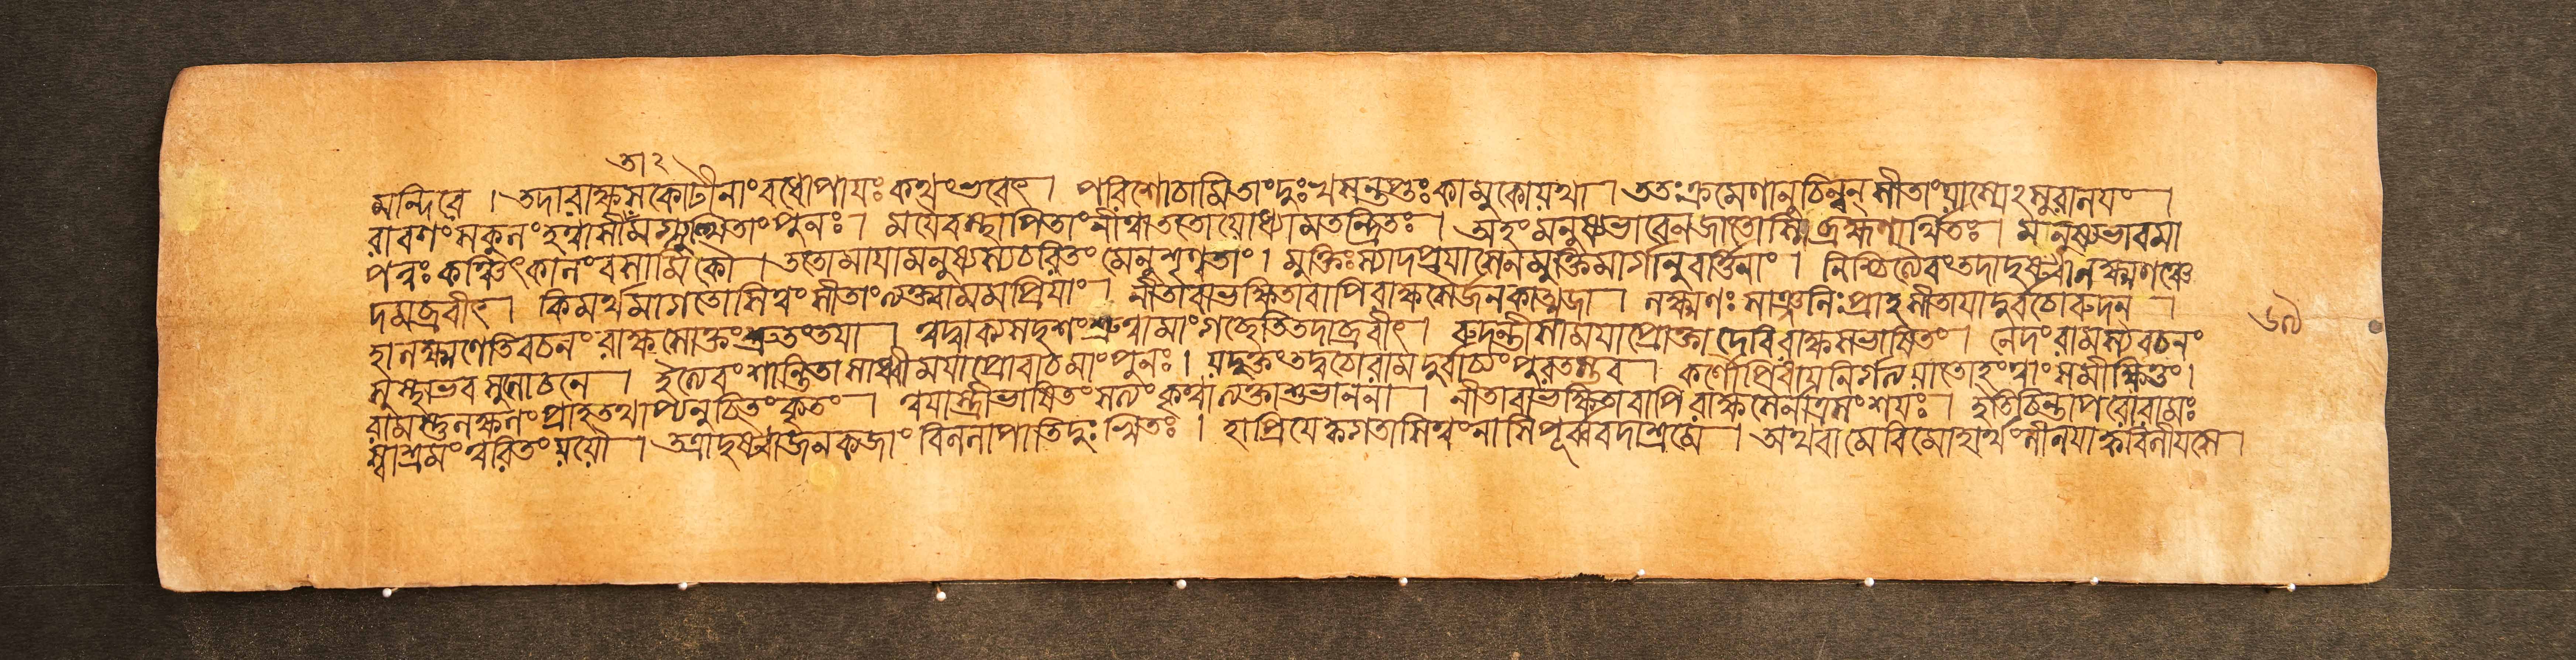 তা ২
মন্দিরে । তদারাক্ষসকোটীনাং বধোপায়ঃ কথং ভবেৎ । পরিশোচামিতাং দুঃখসন্তপ্তঃ কামুকোযথা । ততঃ ক্রমেণানুচিন্বন্ সীতাং যাস্যেঽসুরালয়ং ।
রাবণং সকুলং হত্বা সীতামগ্নৌস্থিতাং পুনঃ । ময়ৈবস্থাপিতাং নীত্বাততোযোধ্যামতন্দ্রিতঃ । অহং মনুষ্যভাবেনজাতোস্মিব্রহ্মণার্থিতঃ । মানুষ্যভাবমা
পন্নঃ কঞ্চিৎকালং বসামি কৌ । ততোমায়ামনুষ্যস্যচরিতং মেনুশৃণ্বতাং । মুক্তিঃ স্যাদপ্রয়াসেনমুক্তিমার্গানুবর্ত্তিনাং । নিশ্চিত্যৈবংতদাদৃষ্ট্বালক্ষ্মণঞ্চে
দমব্রবীৎ । কিমর্থমাগতোসিত্বং সীতাং ত্যক্ত্বামমপ্রিয়াং । নীতাবাভক্ষিতাবাপিরাক্ষসৈর্জনকাত্মজা । লক্ষ্মণঃ সাঞ্জলিঃ প্রাহসীতায়াদুর্বচোরুদন্ ।
হালক্ষ্মণেতিবচনং রাক্ষসোক্তং শ্রুতং তয়া । ত্বদ্বাক্যসদৃশং শ্রুত্বামাংগচ্ছেতিতদাব্রবীৎ । রুদন্তীসাময়াপ্রোক্তা দেবিরাক্ষসভাষিতং । নেদং রামস্যবচনং
সুস্থাভবসুলোচনে । ইত্যেবংশান্তিতাসাধ্বীময়াপ্রোবাচমাং পুনঃ । যদুক্তংতদ্বচোরামদুর্বাচ্যং পুরতস্তব । কর্ণৌপিধায়নির্গত্যযাতোহং ত্বাং সমীক্ষিতুং ।
রামস্তুলক্ষ্মণং প্রাহতথাপ্যনুচিতং কৃতং । ত্বয়াস্ত্রীভাষিতং সত্যং কৃত্বাত্যক্তাশুভাননা । নীতাবাভক্ষিতাবাপিরাক্ষসৈর্নাত্রসংশয়ঃ । ইতিচিন্তাপরোরামঃ
স্বাশ্রমং ত্বরিতং যযৌ । তত্রাদৃষ্ট্বাজনকজাং বিললাপাতিদুঃখিতঃ । হাপ্রিয়েক্বগতাসিত্বংনাসিপূর্ব্ববদাশ্রমে । অথবামেবিমোহার্থংলীলয়াক্ববিলীয়সে ।